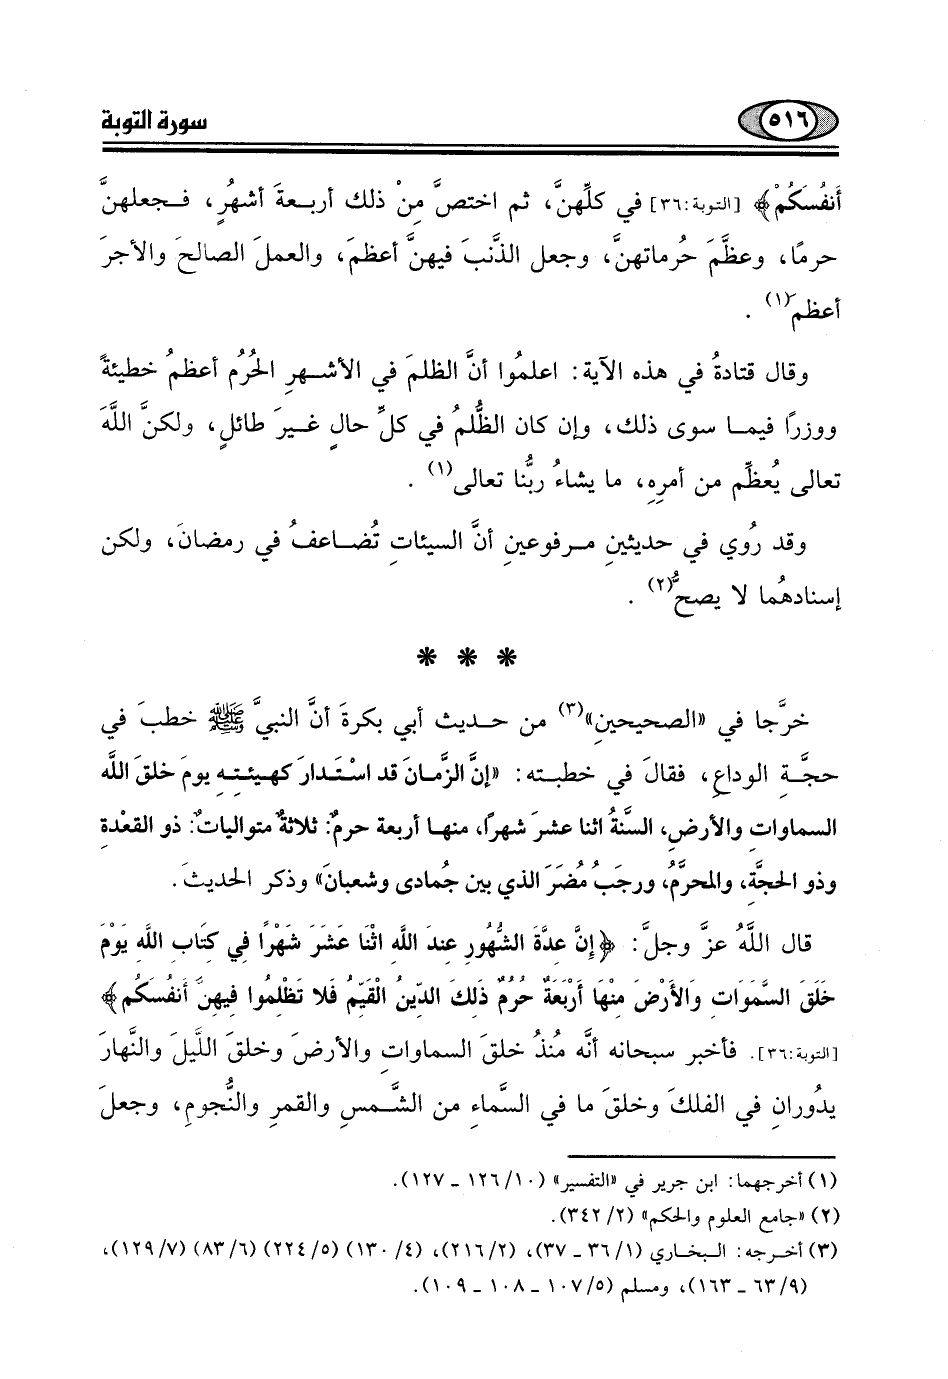 ٥١٦ سورة التوبة
أَنفُسَكُمْ﴾ [التوبة:٣٦] في كلِّهنَّ، ثم اختصَّ مِنْ ذلك أربعةَ أشهُرٍ، فجعلهنَّ
حرمًا، وعظَّمَ حُرماتهنَّ، وجعل الذَّنبَ فيهنَّ أعظمَ، والعملَ الصالحَ والأجرَ
أعظم(١) .
وقال قتادةُ في هذه الآية: اعلمُوا أنَّ الظلمَ في الأشهرِ الحُرُم أعظمُ خطيئةً
ووزرًا فيما سوى ذلك، وإن كان الظُّلمُ في كلِّ حالٍ غيرَ طائلٍ، ولكنَّ اللَّهَ
تعالى يُعظِّم من أمرِه، ما يشاءُ ربُّنا تعالى(١) .
وقد رُوي في حديثينِ مرفوعينِ أنَّ السيئاتِ تُضاعفُ في رمضانَ، ولكن
إسنادهُما لا يصحُّ(٢) .
* * *
خرَّجا في «الصحيحينِ»(٣) من حديث أبي بكرةَ أنَّ النبيَّ ﷺ خطبَ في
حجَّةِ الوداعِ، فقالَ في خطبته: «إنَّ الزَّمانَ قد اسْتَدارَ كهيئتِه يومَ خلقَ اللَّه
السماواتِ والأرضِ، السَّنةُ اثنا عشرَ شهرًا، منها أربعة حرمٌ: ثلاثةٌ متوالياتٌ: ذو القعْدة
وذو الحجَّةِ، والمحرَّمُ، ورجبُ مُضَرَ الذي بين جُمادى وشعبانَ» وذكر الحديثَ.
قال اللَّهُ عزَّ وجلَّ: ﴿إنَّ عدَّةَ الشُّهُورِ عندَ الله اثْنَا عَشَرَ شَهْرًا فِي كتَابِ اللَّه يَوْمَ
خَلَقَ السَّمَوَاتِ والأَرْضَ مِنْهَا أَرْبَعَةٌ حُرُمٌ ذَلكَ الدِّينُ القَيِّمُ فَلا تَظْلِمُوا فيهِنَّ أَنفُسَكُم﴾
[التوبة:٣٦]. فأخبر سبحانه أنَّه مُنذُ خلقَ السماواتِ والأرضَ وخلقَ اللَّيلَ والنَّهارَ
يدُورانِ في الفلكَ وخلقَ ما في السَّماءِ من الشَّمسِ والقمرِ والنُّجومِ، وجعلَ
(١) أخرجهما: ابن جرير في «التفسير» (١٠/ ١٢٦ - ١٢٧).
(٢) «جامع العلوم والحكم» (٢/ ٣٤٢).
(٣) أخرجه: البخاري (١/ ٣٦ - ٣٧)، (٢/ ٢١٦)، (٤/ ١٣٠) (٥/ ٢٢٤) (٦/ ٨٣) (٧/ ١٢٩)،
(٩/ ٦٣ - ١٦٣)، ومسلم (٥/ ١٠٧ - ١٠٨ - ١٠٩).